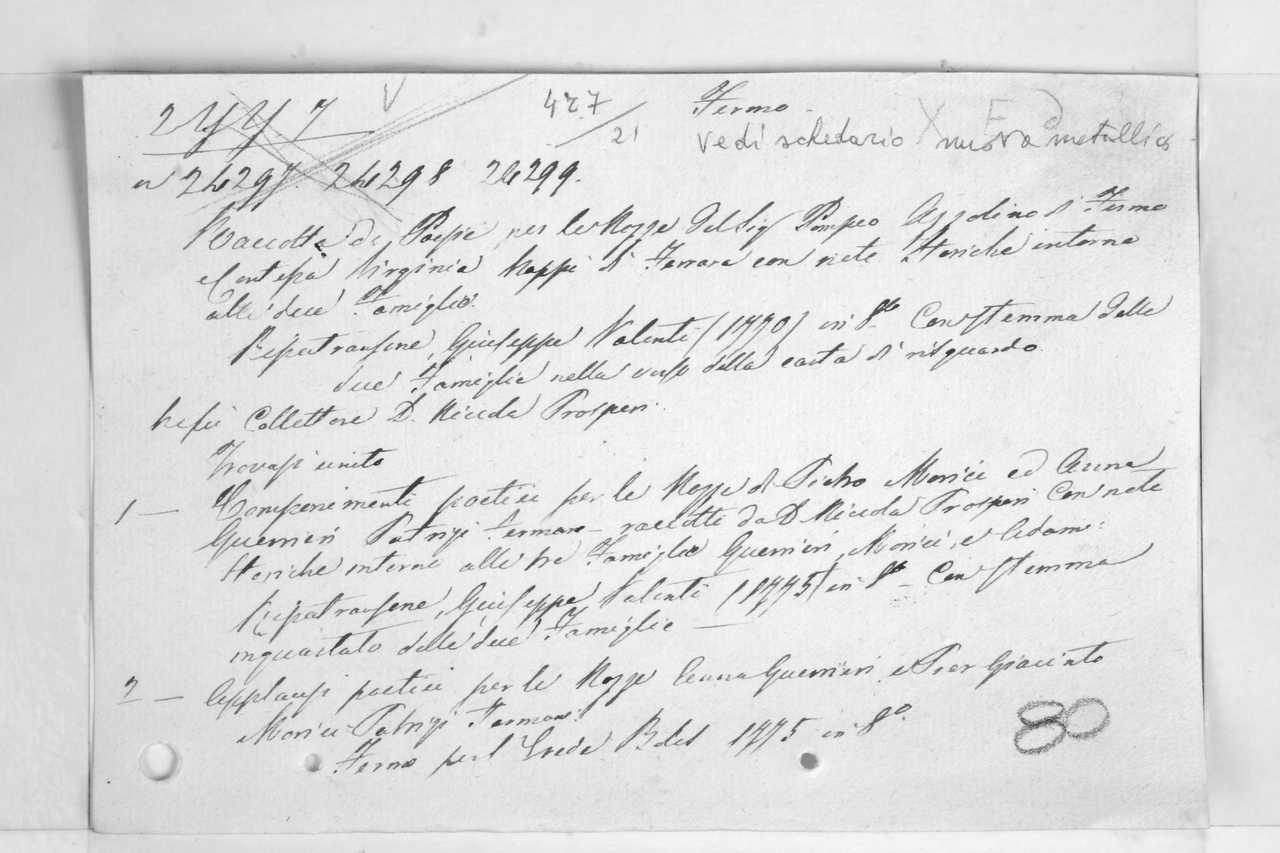 2 Y Y 7 V 427/21 Fermo -
vedi schedario nuovo metallico
n 24297. 24298 24299.
Raccolta di Poesie per le Nozze del Sig Pompeo Azzolino di Fermo
e Contessa Virginia di Ferrara con note Storiche intorno
alle due Famiglie.
Ripatransone, Giuseppe Valenti (1770) in 8° Con stemma delle
due Famiglie nella verso della carta di risguardo.
Ne fu Collettore D. Niccola Prosperi.
Trovasi unito
1 — Componimenti poetici per le Nozze di Pietro Morici ed Anna
Guerrieri Patrizj Fermani - raccolti da D Niccola Prosperi Con note
Storiche intorno alle tre Famiglie Guerrieri, Morici, e Adami:
Ripatransone, Giuseppe Valenti (1775) in 8° - Con stemma
inquartato delle due Famiglie —
2 — Applausi poetici per le Nozze Anna Guerrieri e Pier Giacinto
Morici Patrizj Fermani.
Fermo per l'Erede Bolis 1775 in 8°.
80